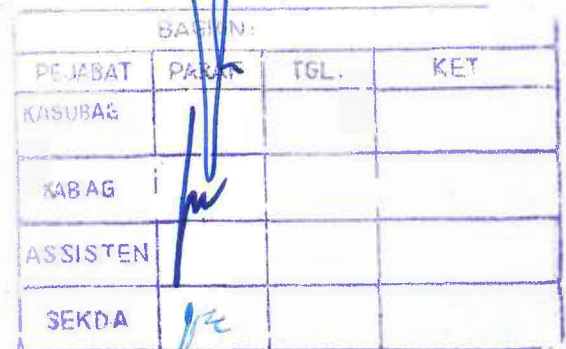 BAGIAN:
PEJABAT PARAF TGL. KET
KASUBAG
KABAG
ASSISTEN
SEKDA